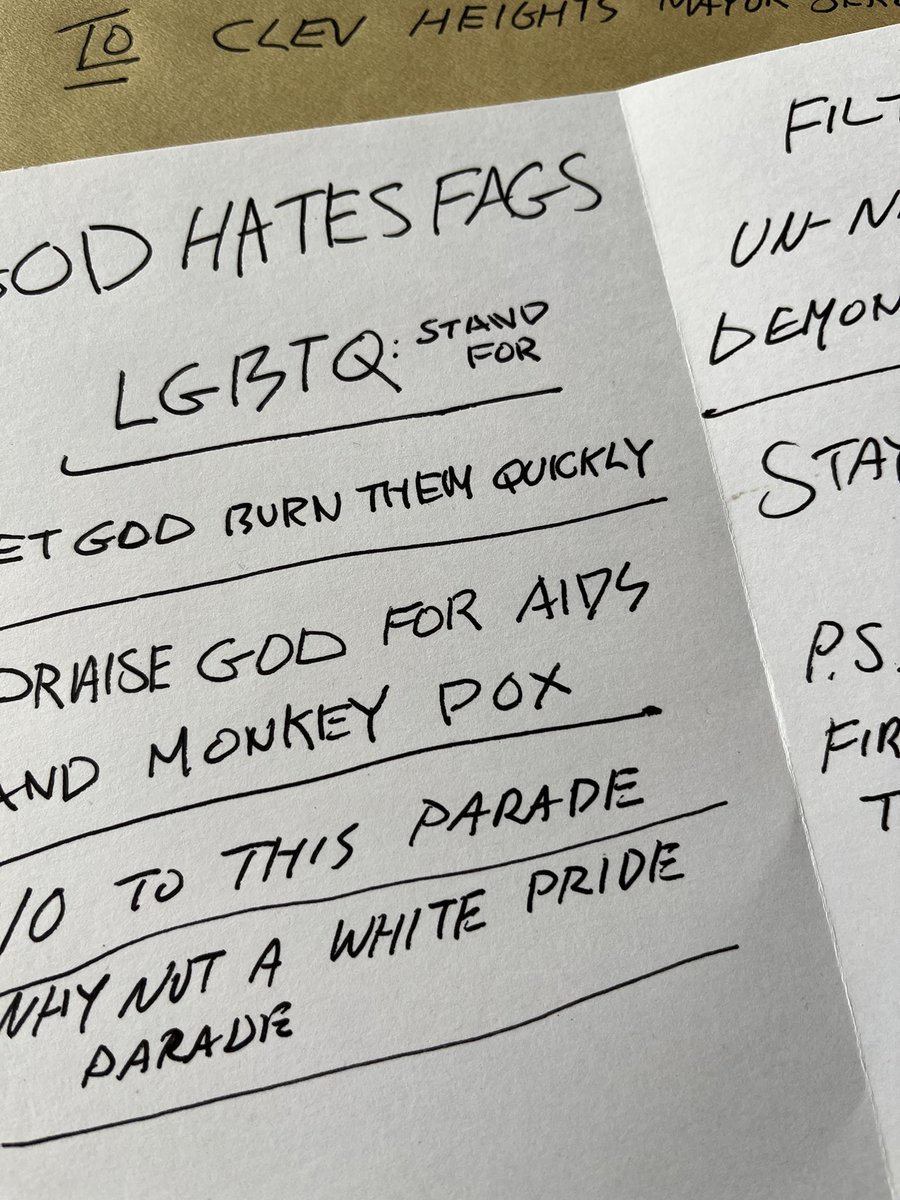 TO CLEV HEIGHTS MAYOR
GOD HATES FAGS
LGBTQ: STAND
FOR
ET GOD BURN THEM QUICKLY
PRAISE GOD FOR AIDS
AND MONKEY POX
TO THIS PARADE
WHY NOT A WHITE PRIDE
PARADE
FILT
UN-N
DEMON
STAY
P.S.
FIR
T